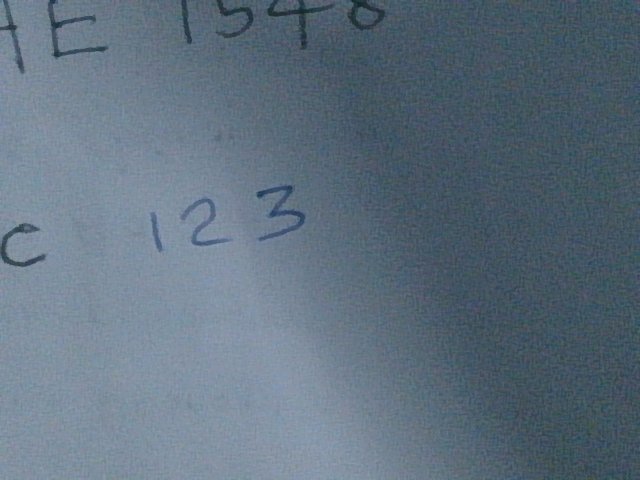 HE 1548
C 123